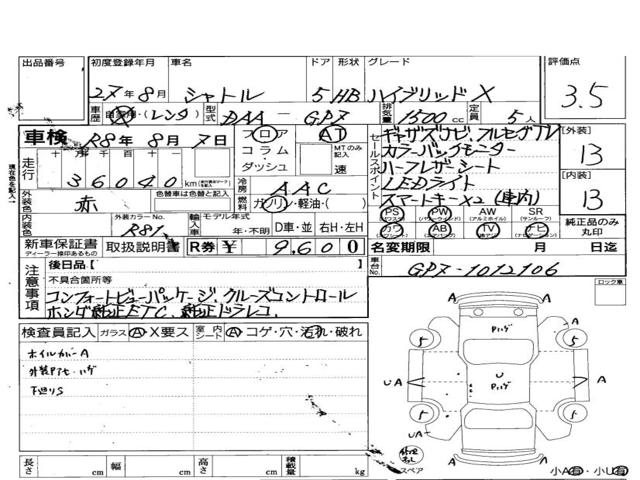 出品番号 初度登録年月 車名 ドア 形状 グレード 評価点
27年8月 シャトル 5 HB ハイブリッドX 3.5
車歴 自家用・(レンタ) 型式 DAA-GP7 排気量 1500cc 定員 5人
車検 R8年8月7日 フロア AT セールスポイント ギャザズナビ、フルセグTV [外装]
走行 十万 万 千 百 十 一 コラム・ダッシュ MTのみ記入 速 カラーバックモニター 13
36040km ハーフレザーシート [内装]
外装色 赤 色替車は色替と記入 冷房 AAC LEDライト 13
燃料 ガソリン・軽油・( ) スマートキーx2(車内)
PS (パワステ) PW (パワーウィンドウ) AW (アルミホイル) SR (サンルーフ) 純正品のみ丸印
内装色 外装カラーNo. R81 輸入車 モデル年式 年・不明 D車・並 右H・左H カワ AB (エアバッグ) TV ナビ
新車保証書 取扱説明書 R券 ¥ 9,600 名変期限 月 日迄
ディーラー捺印あるもの
後日品[ ] 車台No. GP7-1012106
注意事項 不具合箇所等 ロック車
コンフォートビューパッケージ、クルーズコントロール
ホンダ純正ETC、純正ドラレコ、
検査員記入 ガラス A X要ス 室内シート A コゲ・穴・汚れ・破れ
ホイルカバーA
外装Pアセ・ハゲ
下廻りS
A A
Pハゲ
5 5
UA U Pハゲ A
5 5
UA
修理キット スペア A A
長さ cm 幅 cm 高さ cm 積載量 kg 小A有・小U有